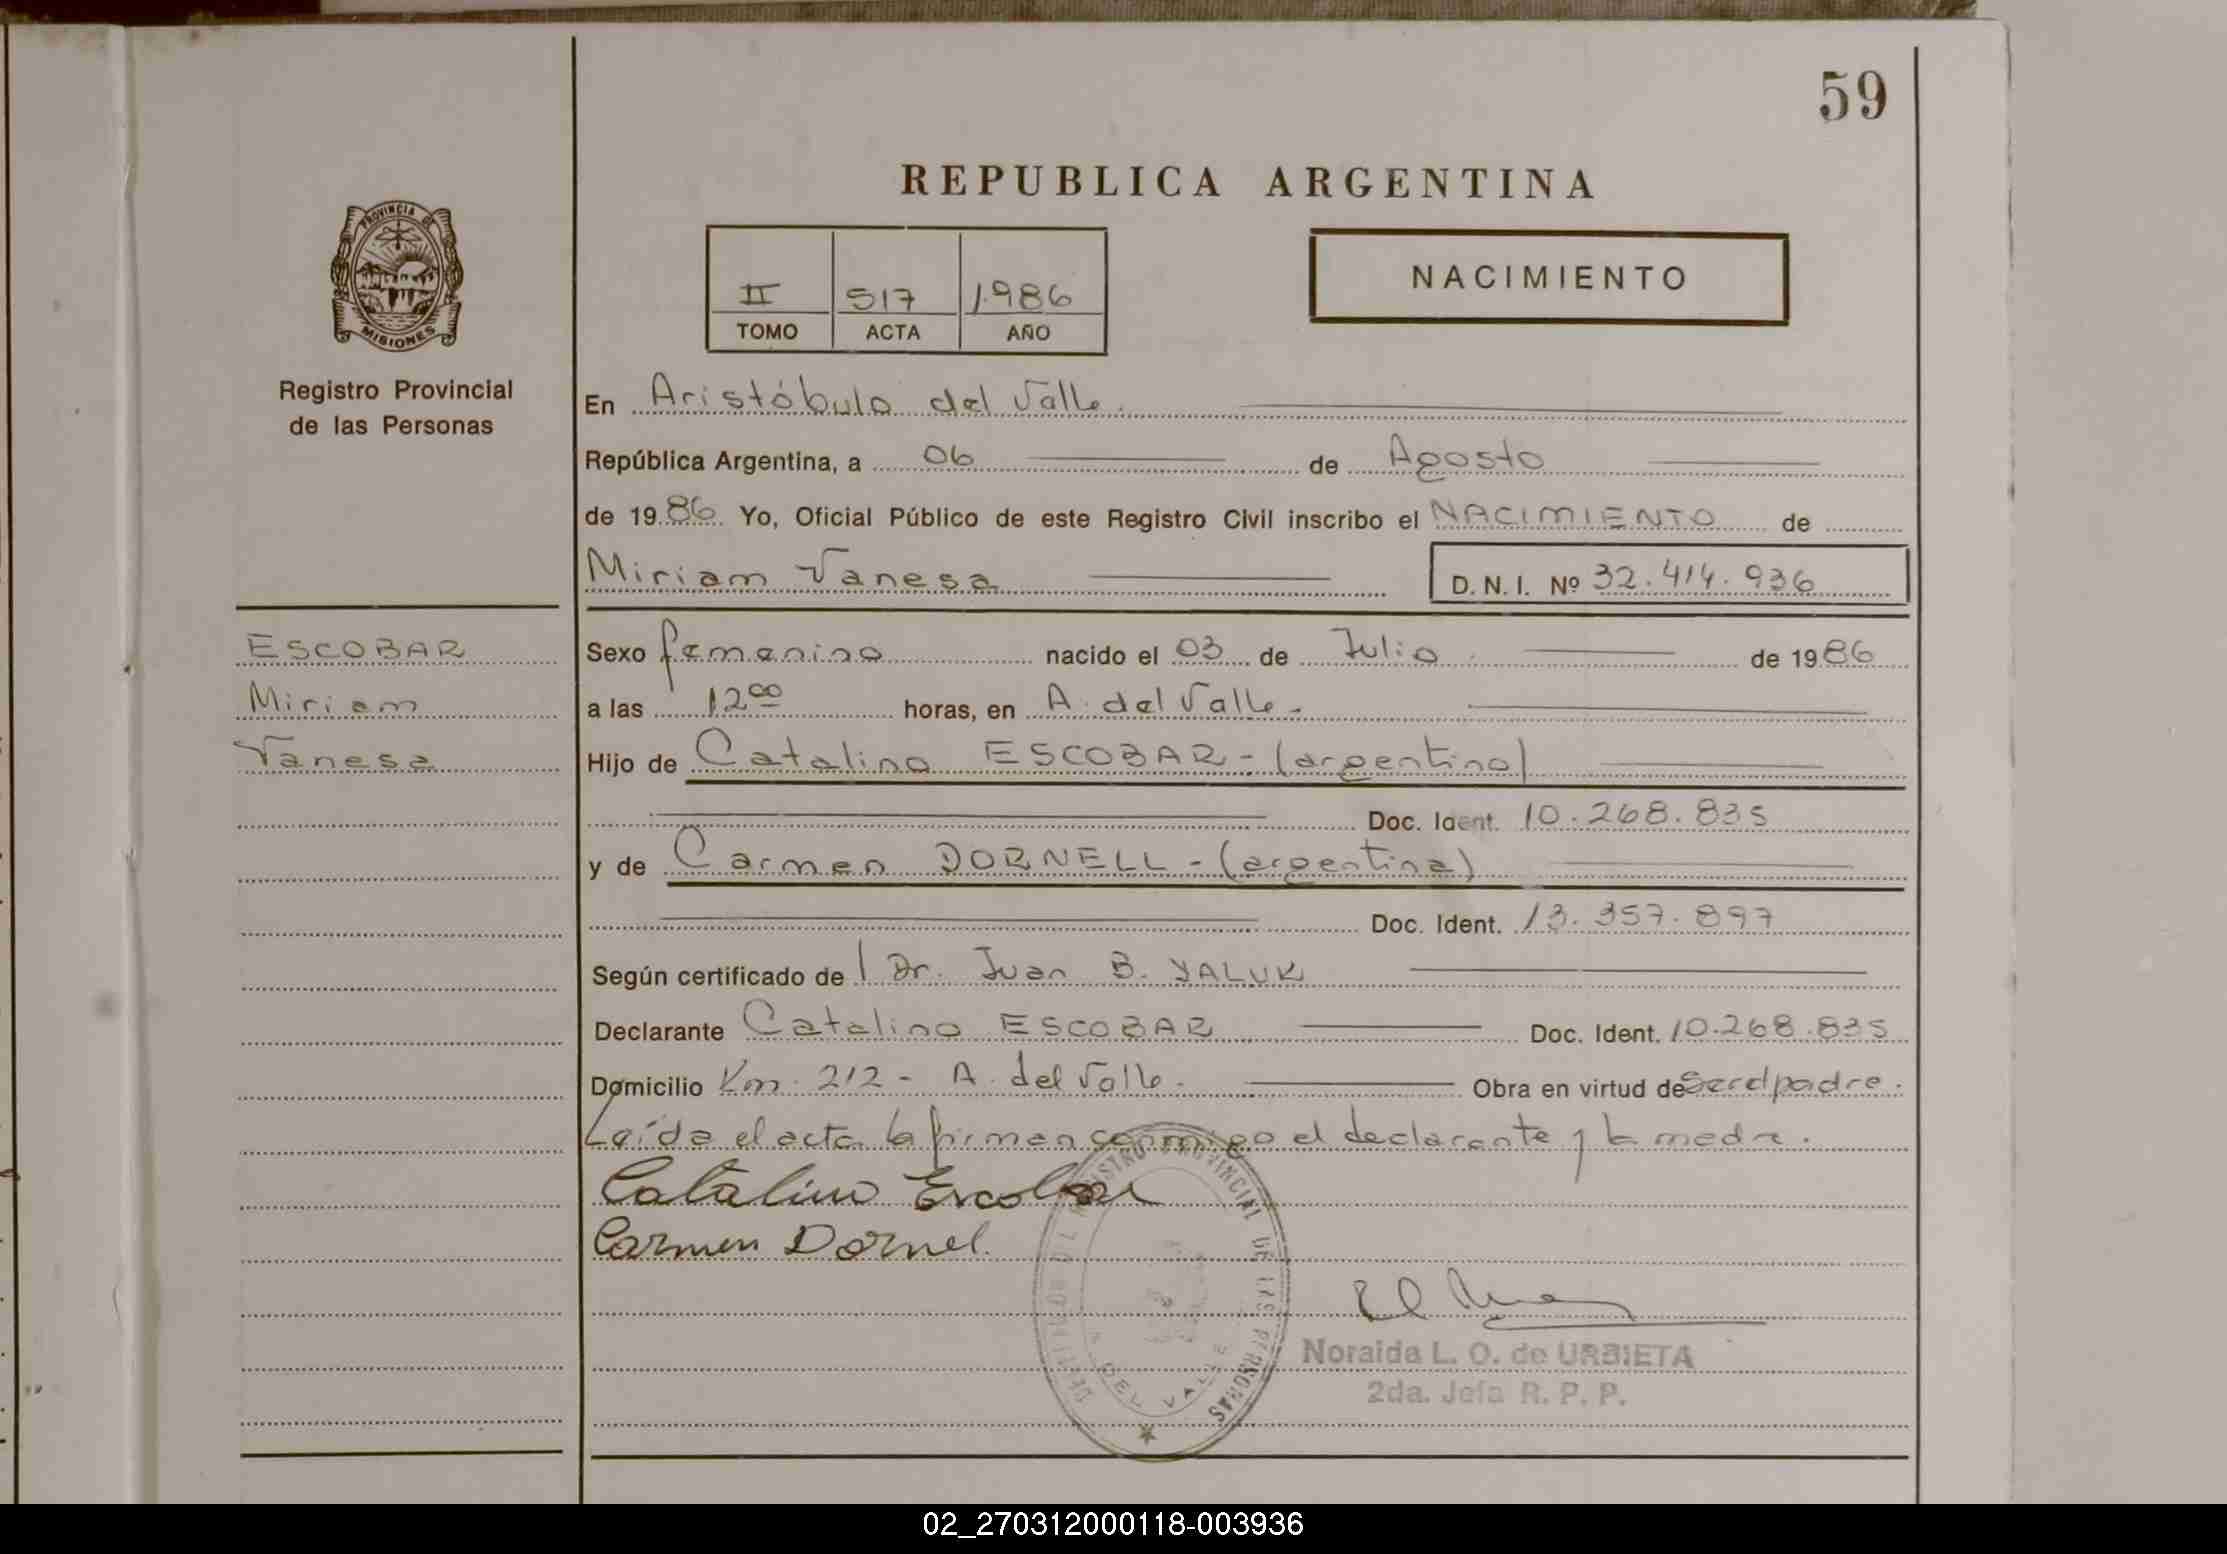 59
REPUBLICA ARGENTINA
PROVINCIA DE
MISIONES
Registro Provincial
de las Personas
II 517 1.986
TOMO ACTA AÑO
NACIMIENTO
En Aristóbulo del Valle.
República Argentina, a 06 de Agosto
de 1986. Yo, Oficial Público de este Registro Civil inscribo el NACIMIENTO de
Miriam Vanesa D. N. I. Nº 32.414.936
ESCOBAR
Miriam
Vanesa
Sexo femenino nacido el 03 de Julio de 1986
a las 12 00 horas, en A. del Valle.
Hijo de Catalino ESCOBAR - (argentino)
Doc. Ident. 10.268.835
y de Carmen DORNELL - (argentina)
Doc. Ident. 13.357.897
Según certificado de Dr. Juan B. YALUK
Declarante Catalino ESCOBAR Doc. Ident. 10.268.835
Domicilio Km. 212 - A. del Valle. Obra en virtud de Ser el padre.
Leída el acta la firman conmigo el declarante y la madre.
Catalino Escobar
Carmen Dornel
REGISTRO PROVINCIAL DE LAS PERSONAS
A. DEL VALLE
Noraida L. O. de URBIETA
2da. Jefa R. P. P.
02_270312000118-003936